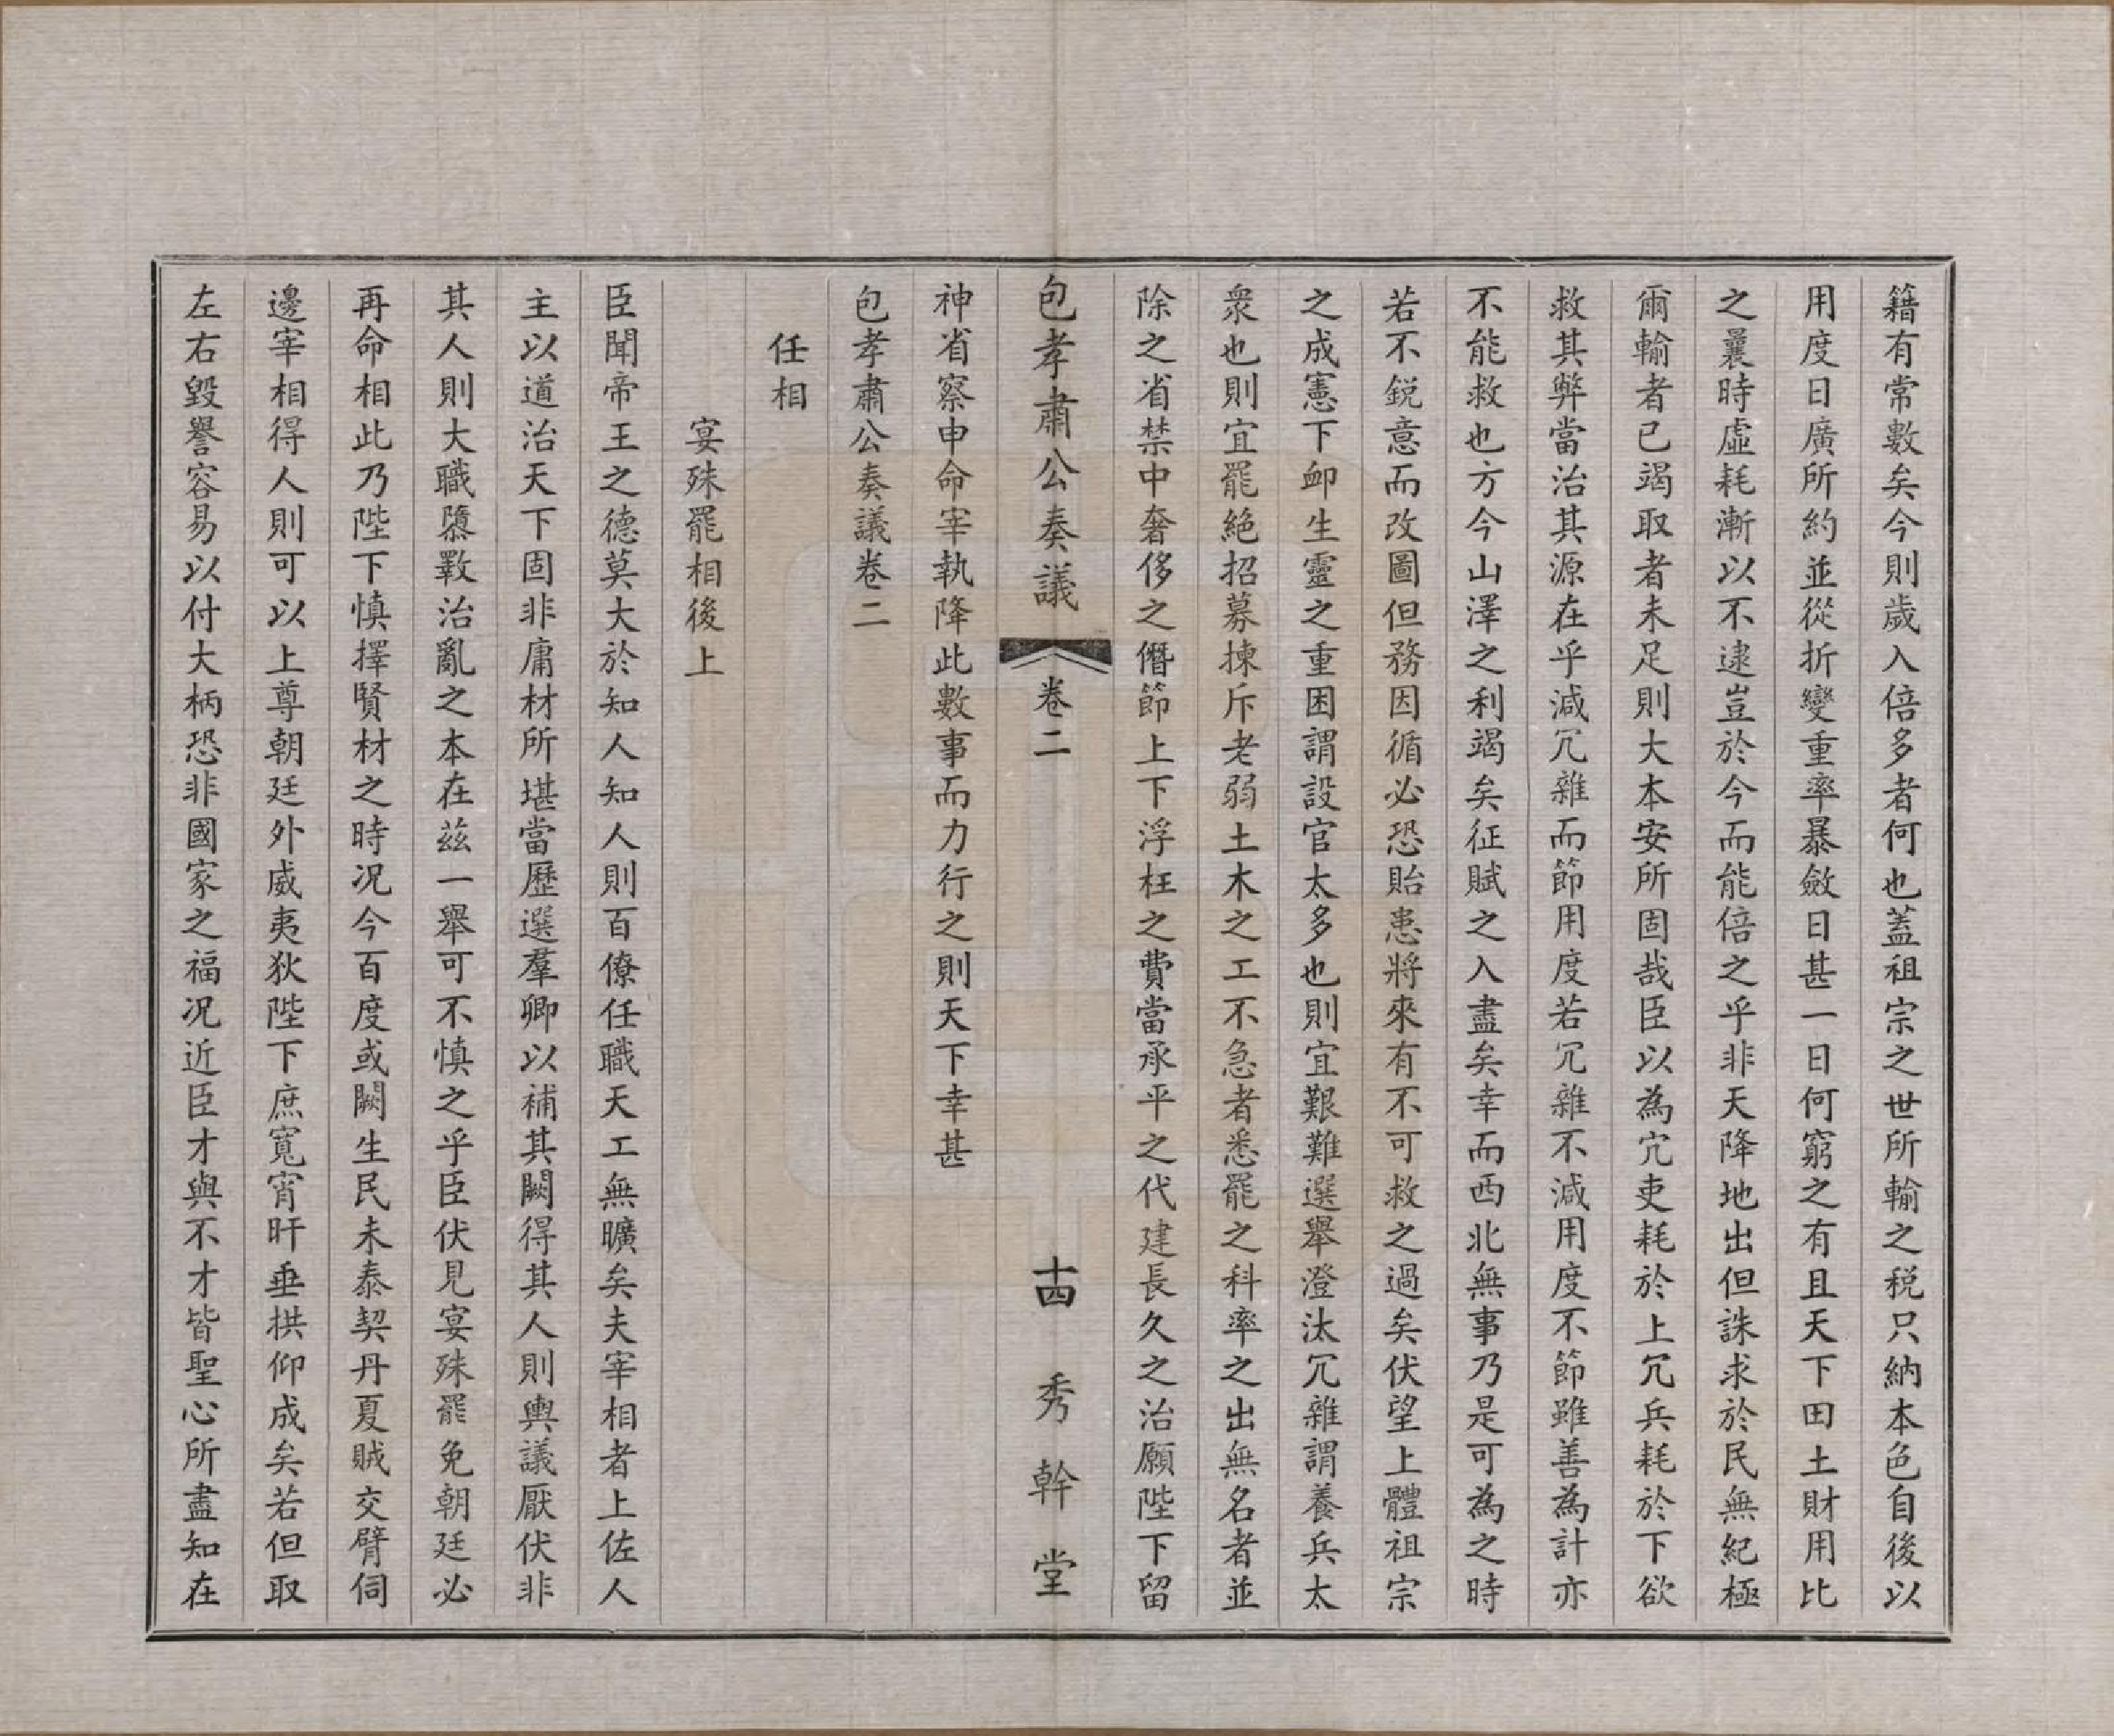 籍有常數矣今則歲入倍多者何也蓋祖宗之世所輸之税只納本色自後以
用度日廣所約並從折變重率暴斂日甚一日何窮之有且天下田土財用比
之曩時虛耗漸以不逮豈於今而能倍之乎非天降地出但誅求於民無紀極
爾輸者已竭取者未足則大本安所固哉臣以為冗吏耗於上冗兵耗於下欲
救其弊當治其源在乎減冗雜而節用度若冗雜不減用度不節雖善為計亦
不能救也方今山澤之利竭矣征賦之入盡矣幸而西北無事乃是可為之時
若不鋭意而改圖但務因循必恐貽患將來有不可救之過矣伏望上體祖宗
之成憲下卹生靈之重困謂設官太多也則宜艱難選舉澄汰冗雜謂養兵太
衆也則宜罷絶招募揀斥老弱土木之工不急者悉罷之科率之出無名者並
除之省禁中奢侈之僭節上下浮枉之費當承平之代建長久之治願陛下留
包孝肅公奏議 卷二 十四 秀幹堂
神省察申命宰執降此數事而力行之則天下幸甚
包孝肅公奏議卷二
任相
宴殊罷相後上
臣聞帝王之德莫大於知人知人則百僚任職天工無曠矣夫宰相者上佐人
主以道治天下固非庸材所堪當歷選羣卿以補其闕得其人則輿議厭伏非
其人則大職隳斁治亂之本在茲一舉可不慎之乎臣伏見宴殊罷免朝廷必
再命相此乃陛下慎擇賢材之時况今百度或闕生民未泰契丹夏賊交臂伺
邊宰相得人則可以上尊朝廷外威夷狄陛下庶寬宵旰垂拱仰成矣若但取
左右毀譽容易以付大柄恐非國家之福况近臣才與不才皆聖心所盡知在